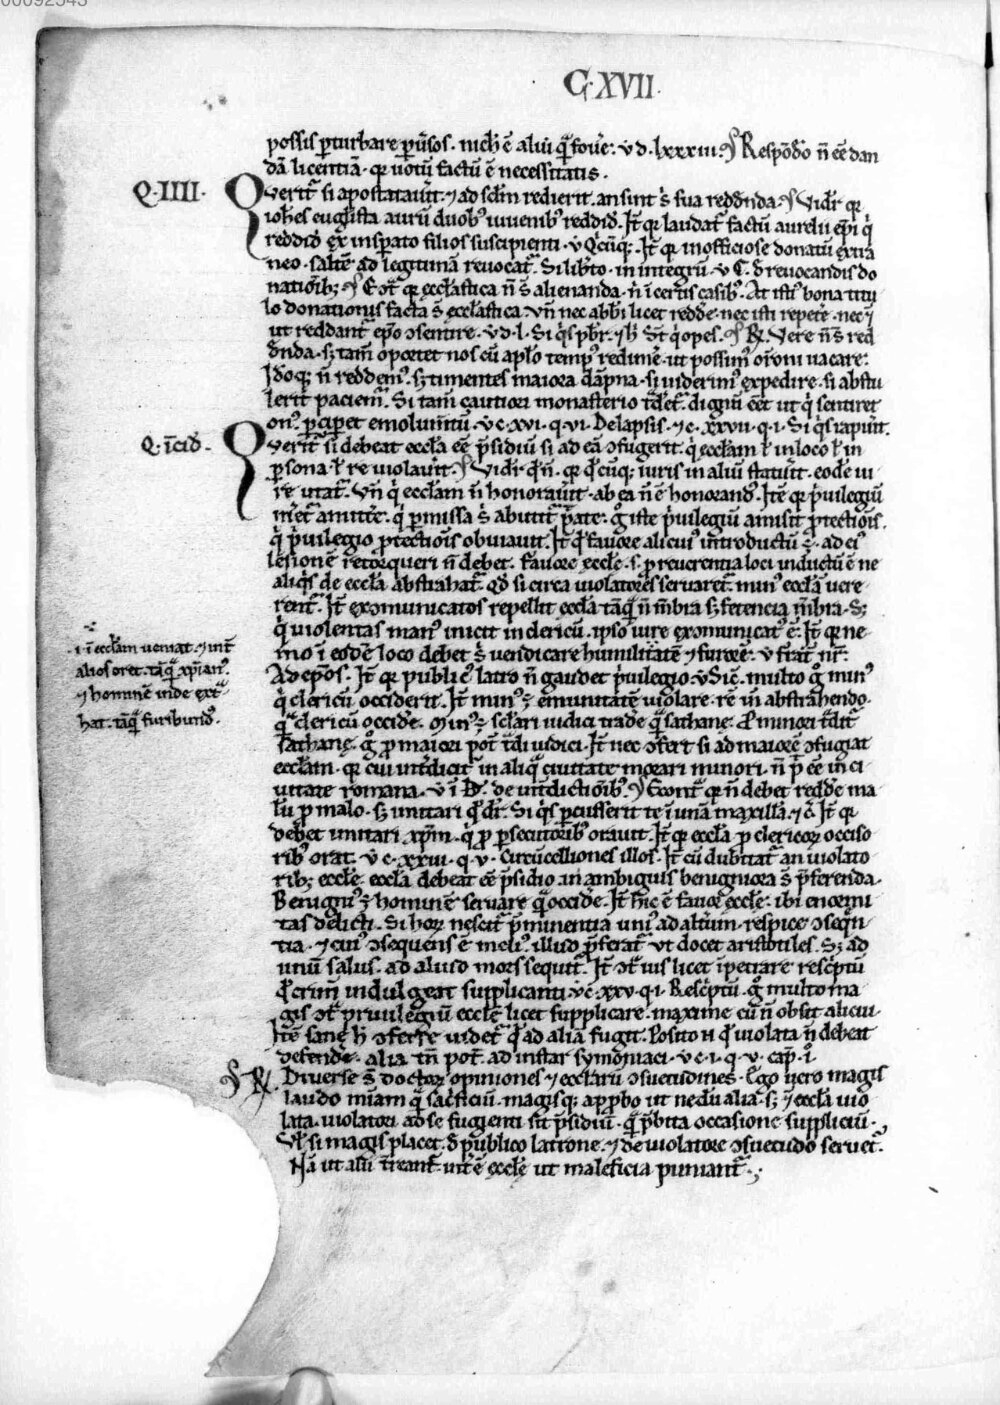 00092543
C·XVII·
possis ꝑturbare ꝑuersos· nichil ē aliud qͣ fouere· v d· lxxxiii· § Respōdeo n̄ eē dan
dā licentiā· qr uotū factū ē necessitatis·
Q·IIII·
Queritͬ si apostatauerit ⁊ ad sclm redierit· an sint s̄ sua reddenda § Videtͬ qr
ioh̄es euglista aurū duobꝰ iuuenibꝰ reddid· Itē qr laudatͬ factū aurelii ep̄i qi
reddid ex insperato filios suscipienti· v Qͥcūqꝫ· Itē qr inofficiose donatū extra
neo· saltē ad legitimā reuocatͬ· Si liberto· in integrū· v C· d reuocandis do
nationibꝫ § Econtͣ qr eccl̄astica n̄ s̄ alienanda· ni ī certis casibꝰ· At isti bona titu
lo donationis facta s̄ eccl̄astica· Vn̄ nec abb̄i licet reddere· nec isti repetere· nec
ut reddantͬ ep̄o ɔsentire· v d·l· Si qͥs pbr̄· ⁊ h̄ Sͭt qͥ opes· § R̸· Vere n̄ s̄ red
denda· sꝫ tam̄ oportet nos cū aplo tempꝰ redimere· ut possimꝰ or̄oni uacare·
Idoqꝫ n̄ reddemꝰ· sꝫ timentes maiora dāpna· si uiderimꝰ expedire· si abstu
lerit paciemꝰ· Si tam̄ cautiori monasterio tͣderetͬ· dignū eēt ut qͥ sentiret
onꝰ· ꝑciperet emolumtū· v c· xvi· q· vi· De lapsis· ⁊ c· xxvii· q· i· Si qͥs rapuit·
Q·īcid·
Queritͬ si debeat eccl̄a eē p̄sidiū si ad eā ɔfugerit· qͥ eccl̄am ł in loco ł in
ꝑsona ł re uiolauerit· § Videtͬ qͥ n̄· qr qͥcūqꝫ iuris in aliū statuerit· eodē iu
re utatͬ· Vn̄ qͥ eccl̄am n̄ honorauerit· ab ea n̄ ē honorandꝰ· Itē qr p̄uilegiū
meretͬ amittere· qͥ ꝑmissa s̄ abutitͬ p̄tate· ḡ iste p̄uilegiū amisit ꝓtectiōis·
qͥ p̄uilegio ꝓtectiōis obuiauit· Itē qͥ fauore alicuiꝰ introductū ē· ad eiꝰ
lesionē retorqueri n̄ debet· Fauore eccl̄e· s· ꝓ reuerentia loci inductū ē ne
aliqͥs de eccl̄a abstrahatͬ· Qd si circa uiolatores seruaretͬ· minꝰ eccl̄am uere
rentͬ· Itē exomunicatos repellit eccl̄a tāqͣ n̄ m̄bra sꝫ fetencia m̄bra· Sꝫ
qͥ uiolentas manꝰ inicit in clericū· ipso iure exomunicatꝰ ē· Itē qr ne
mo ī eodē loco debet s̄ uendicare humilitatē ⁊ furorē· v frat̄ nr̄·
·i· ī eccl̄am ueniat· ⁊ inter
alios oret· tāqͣ xp̄ianꝰ·
⁊ hominē inde extͣ
hat· tāqͣ furibundꝰ·
Ad ep̄os· Itē qr publicꝰ latro n̄ gaudet p̄uilegio· v Sic̄· multo ḡ minꝰ
qͥ clericū occiderit· Itē minꝰ ē emunitatē uiolare· rē in abstrahendo·
qͣ clericū occidere· Minꝰ ē sclari iudici tradere qͣ sathane· Ꝓ minori tͣditͬ
sathane· ḡ ꝓ maiori potͬ tͣdi iudici· Itē nec ɔfert si ad maiorē ɔfugiat
eccl̄am· qr cui int̄dicitͬ in aliqͣ ciuitate morari minori· n̄ p̄t eē in ci
uitate romana· v ī D· de int̄dictiōibꝰ· § Econtͣ qr n̄ debet reddere ma
lū ꝓ malo· sꝫ imitari qͥ dr̄· Si qͥs ꝑcusserit te ī unā maxillā· ⁊ c̄· Itē qr
debet imitari xp̄m· qͥ ꝓ ꝑsecutoribꝰ orauit· Itē qr eccl̄a ꝓ clericoꝝ occiso
ribꝰ orat· v c· xxiii· q· v· Circūcelliones illos· Itē cū dubitatͬ an uiolato
ribꝫ eccl̄e· eccl̄a debeat eē p̄sidio· in ambiguis benigniora s̄ p̄ferenda·
Benigniꝰ ē hominē seruare qͣ occidere· Itē hinc ē fauor eccl̄e· ibi enormi
tas delicti· Si hoꝝ nescitͬ p̄minentia uniꝰ ad altͥum· respice ɔseqn̄
tia· ⁊ cuiꝰ ɔsequens ē meliꝰ· illud p̄feratͬ· Vt docet aristotiles· Sꝫ ad
unū salus· ad aliud mors sequitͬ· Itē ɔtͣ ius licet īpetrare rescͥptū
qͥ crim̄ indulgeat supplicanti· v c· xxv· q· i· Rescͥptū· ḡ multo ma
gis ɔtͣ priuilegiū eccl̄ē licet supplicare· maxime cū n̄ obsit alicui·
Itē sane h̄ ɔferre uidetͬ qͥ ad aliā fugit· Posito n̄ qͥ uiolata n̄ debeat
defendere· alia tn̄ potͬ· ad instar symōiaci· v c· i· q· v· cap̄· i·
§ R̸· Diuerse s̄ doctoꝝ opiniones ⁊ eccl̄arū ɔsuetudines· Ego uero magis
laudo mīam qͣ sacͥficiū· magisqꝫ approbo ut nedū alia· sꝫ ⁊ eccl̄a uio
lata· uiolatori ad se fugienti sit p̄sidiū· qͣ p̄bita occasione suppliciū·
Vł si magis placet· d publico latrone· ⁊ de uiolatore ɔsuetudo seruetͬ·
Nā ut asū tͬreantͬ· int̄ē eccl̄e ut maleficia puniantͬ·